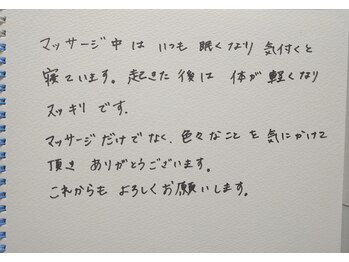 マッサージ中は いつも 眠くなり 気付くと
寝ています。起きた 後は 体が 軽くなり
スッキリ です.
マッサージだけでなく、色々なこと を 気にかけて
頂き ありがとうございます。
これからも よろしくお願いします。